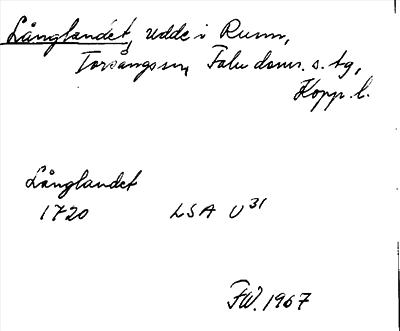 Långlandet, udde i Runn,
Torsångs sn, Falu doms. s. tg,
Kopp. l.
Långlandet
1720 LSA U³¹
FW. 1967